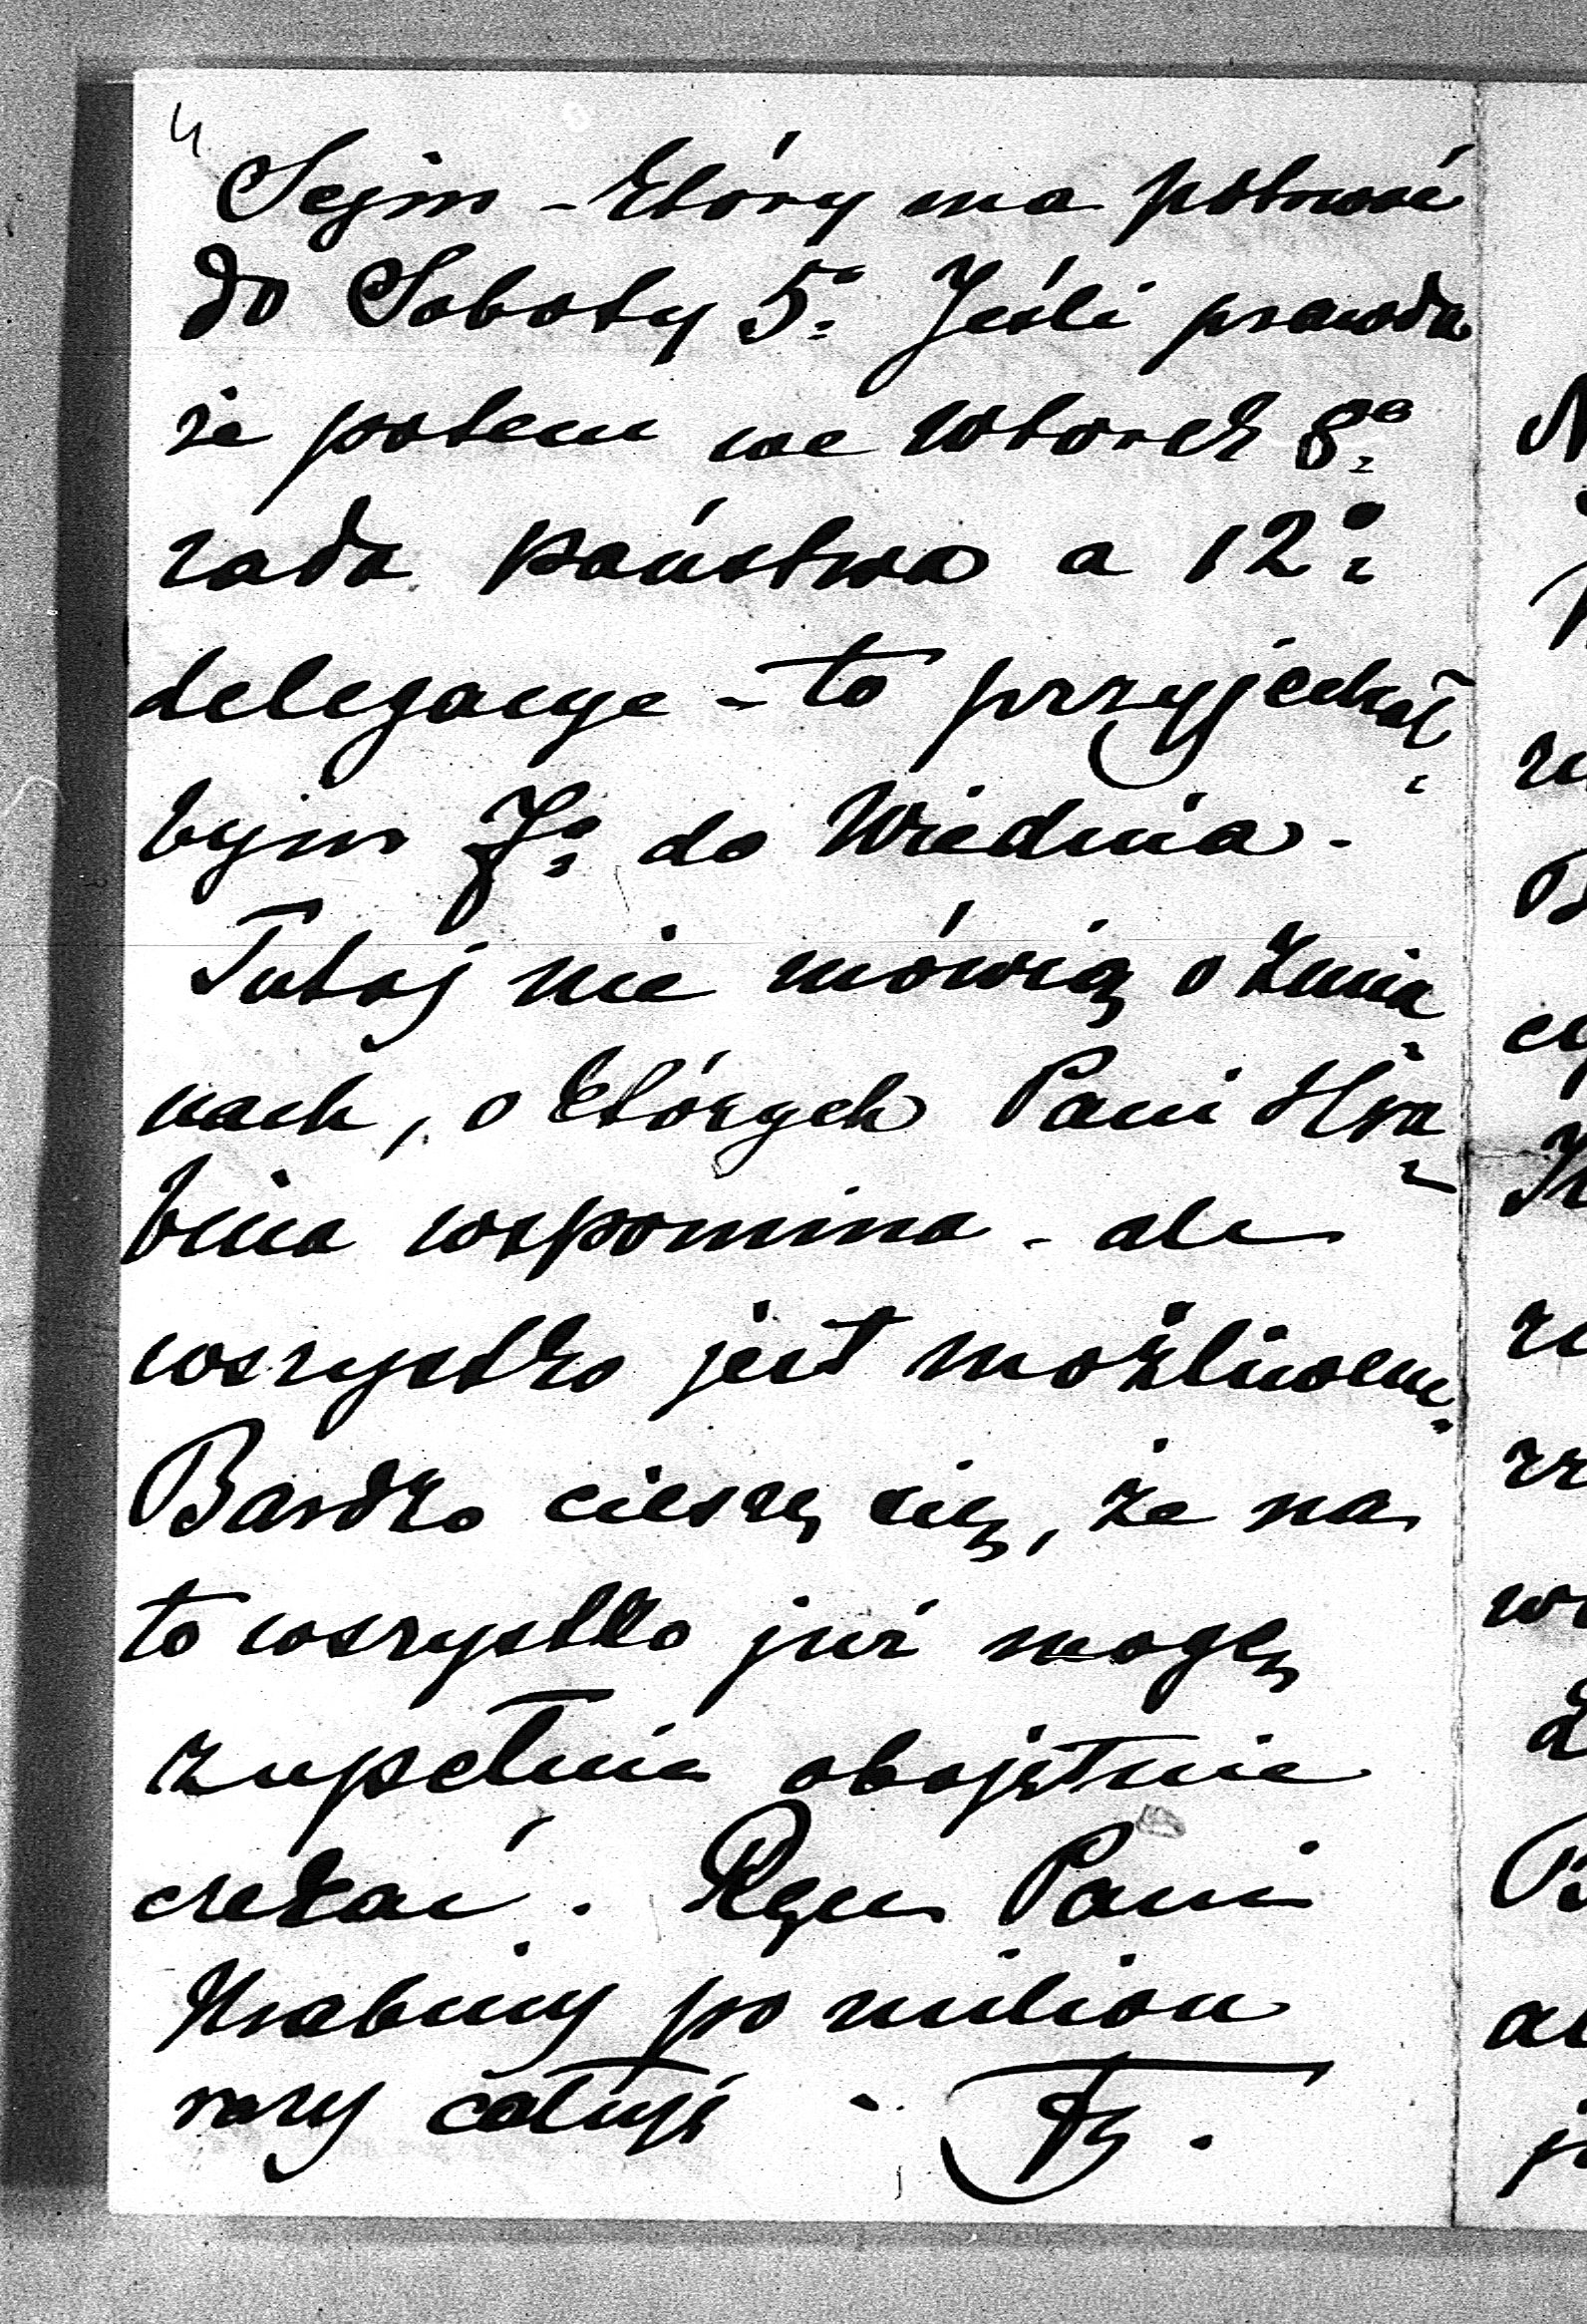 4
Sejm - który ma potrwać
do Soboty 5º. Jeśli prawda
że potem we wtorek 8º
rada państwa a 12º
delegacye - to przyjechał
bym 7º do Wiednia.
Tutaj nie mówią o zmia
nach, o których Pani Hra
bina wspomina - ale
wszystko jest możliwem.
Bardzo cieszę się, że na
to wszystko już mogę
zupełnie obojętnie
czekać. Ręce Pani
Hrabiny po milion
razy całuję -